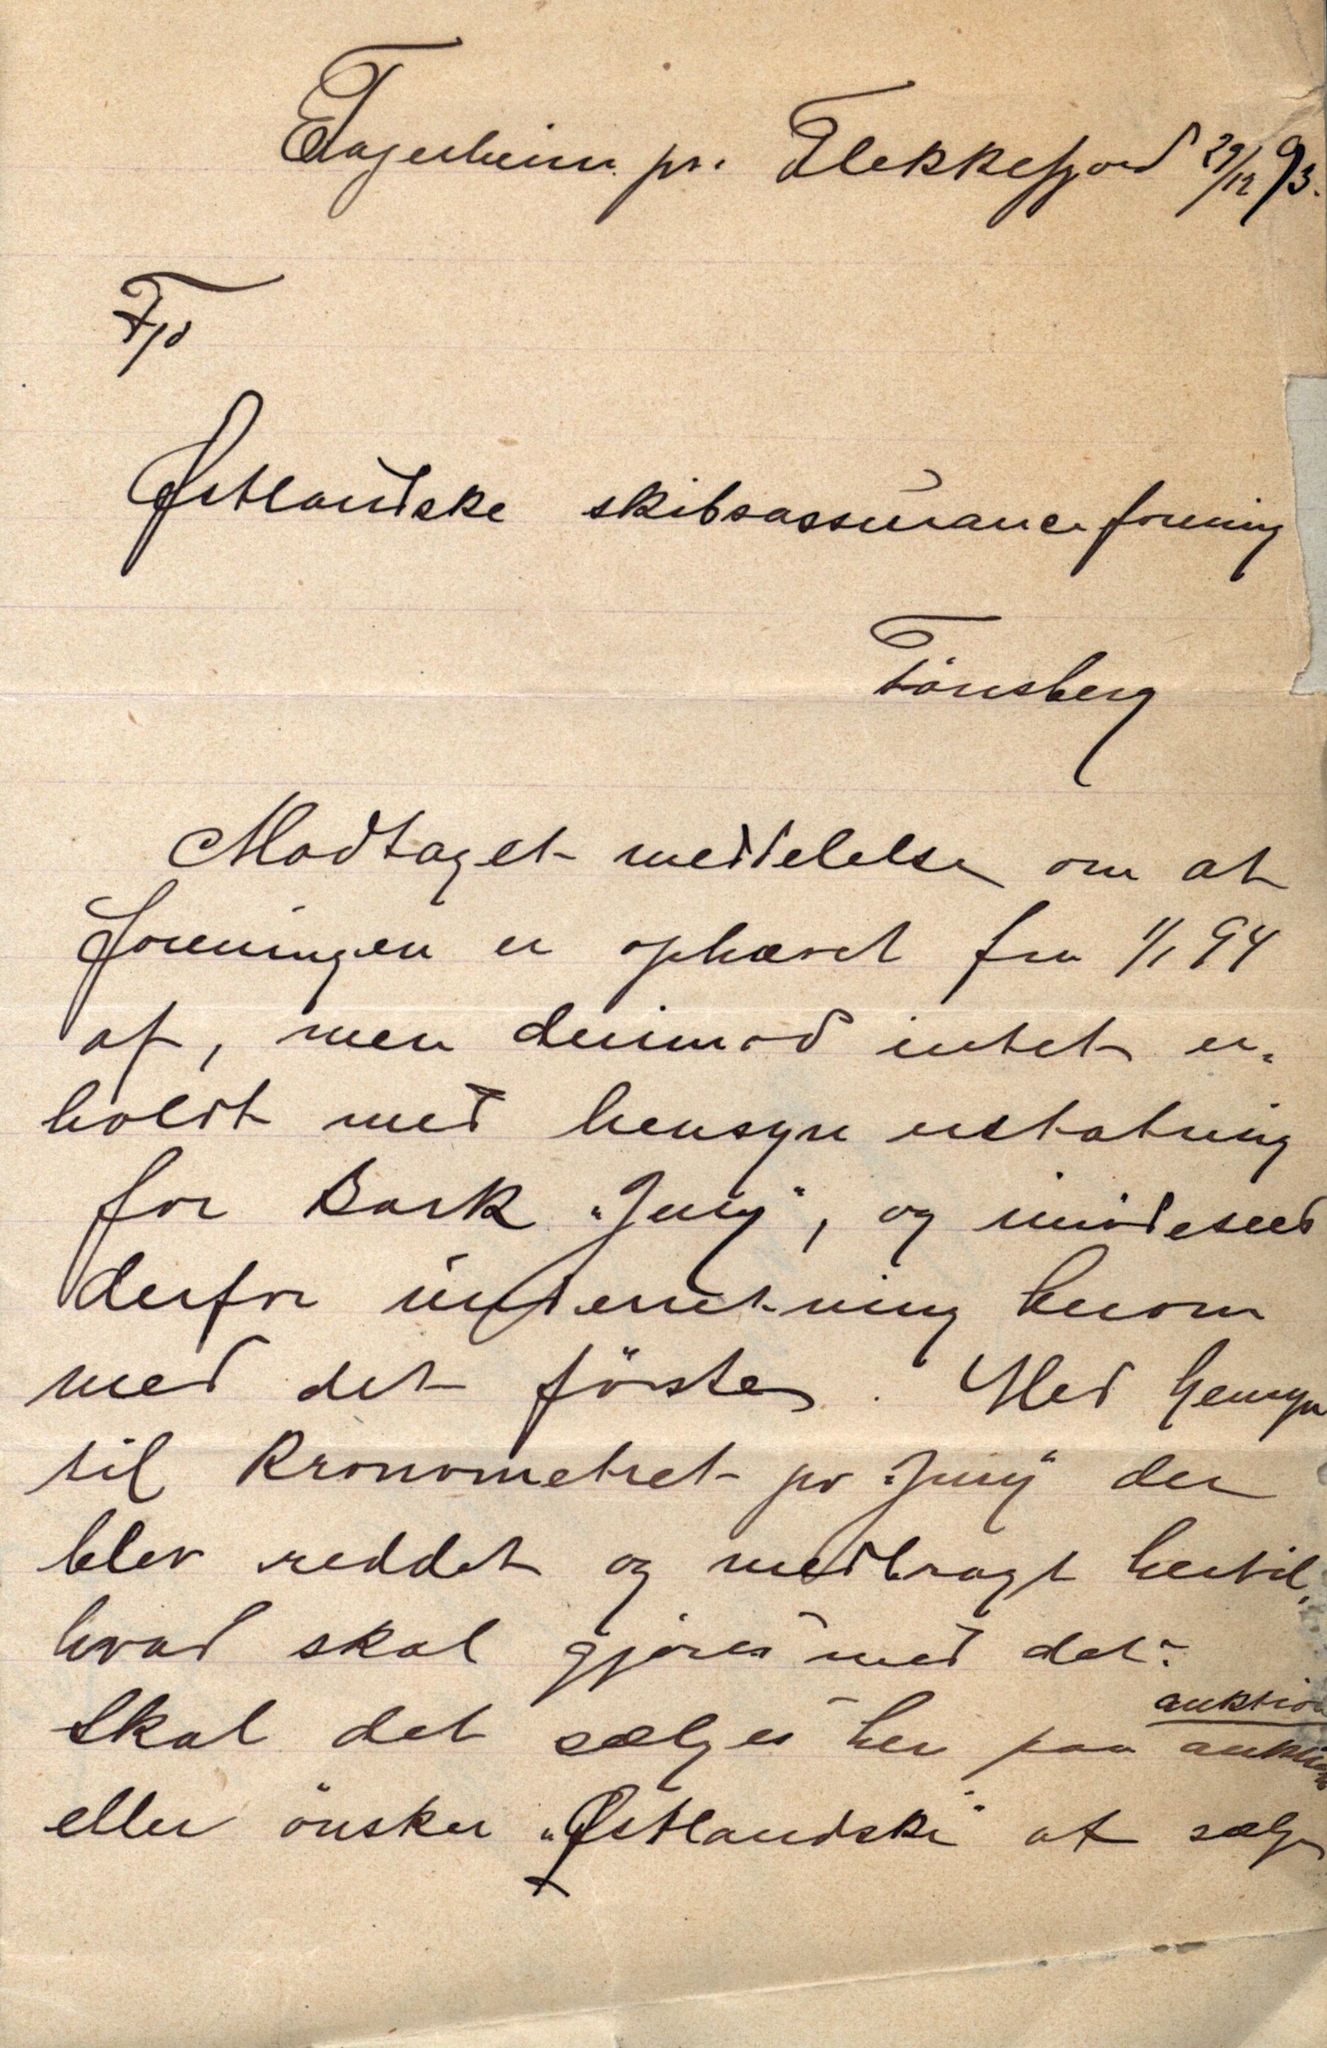 Fagerheim pr. Flekkefjord 29/12 93.
Østlandske skibsassuranceforening
Tönsberg
Modtaget meddelelse om at
foreningen er ophævet fra 1/1 94
af, men derimod intet er-
holdt med hensyn erstatning
for Bark "Juny", og imödeseed
derfor underretning herom
med det förste. Med hensyn
til kronometret pr "Juny" der
blev reddet og medbragt hertil,
hvad skal gjöres med det.
Skal det sælges her paa auktion
auktion
eller önsker "Østlandske" at sælge